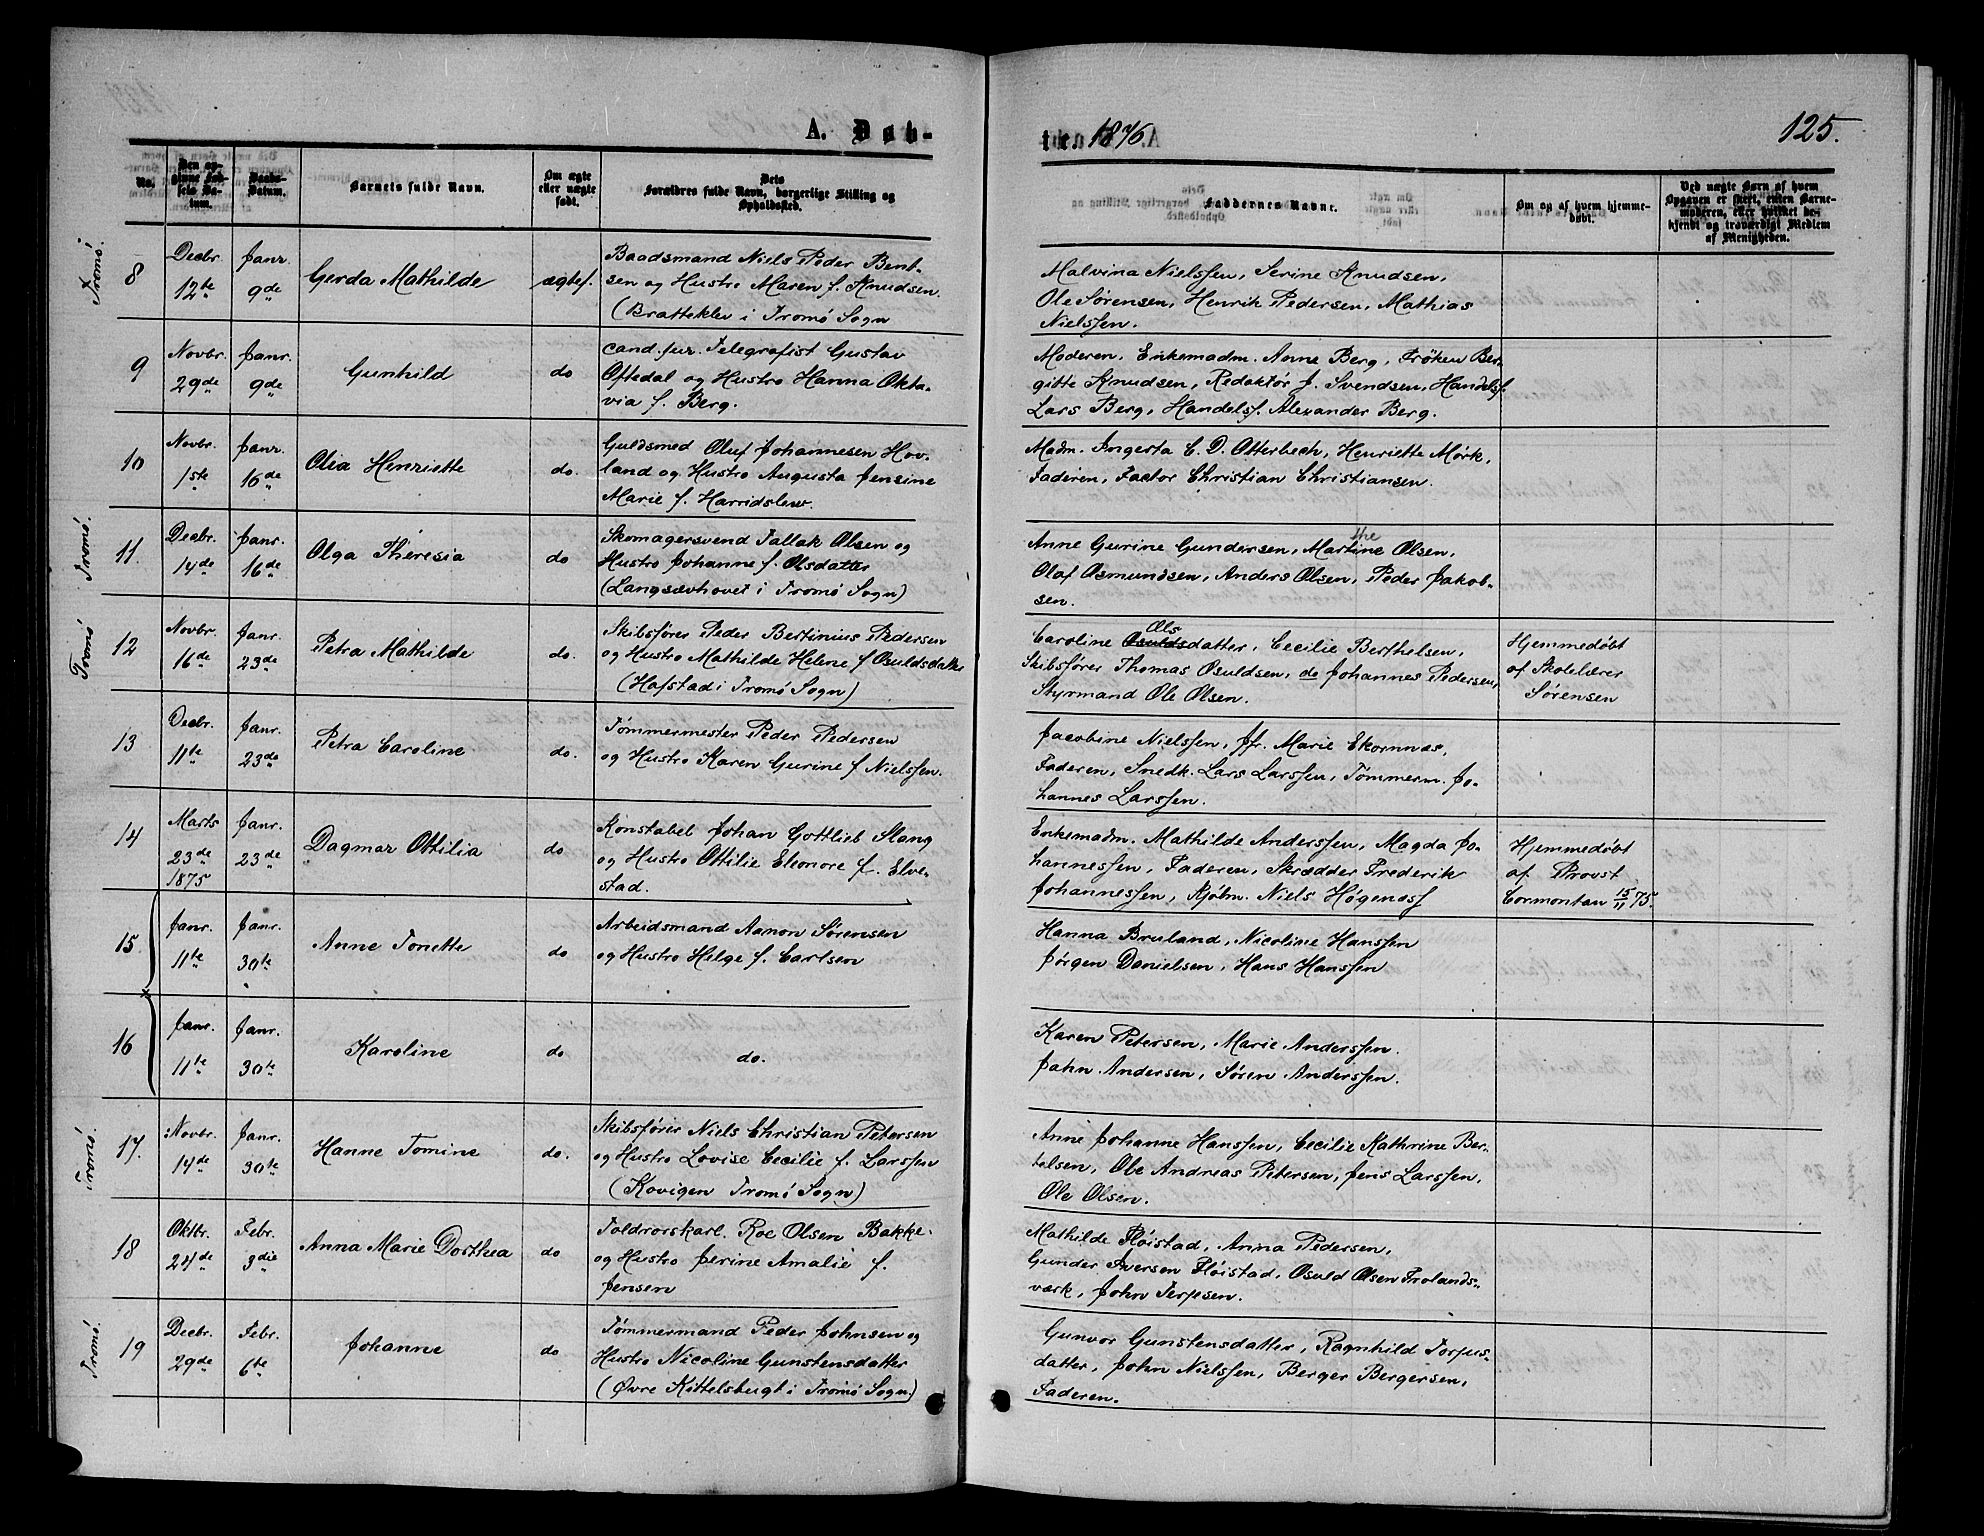 A. Døb-
te 1876.
125.
No.
Den op-
givne Fød-
sels Da-
tum.
Daabs-
Datum.
Barnets fulde Navn.
Om ægte
eller uægte
født.
Dets
Forældres fulde Navn, borgerlige Stilling og
Opholdssted.
Faddernes Navne.
Om og af hvem hjemme-
døbt.
Ved uægte Børn af hvem
Opgaven er skeet, enten Barne-
moderen, eller hvilket be-
kjendt og troværdigt Medlem
af Menigheden.
Tromö.
8
Decbr. 12te
Janr. 9de
Gerda Mathilde
ægtef.
Baadsmand Niels Peder Bent-
sen og Hustro Maren f. Knudsen.
(Bratteklev i Tromö Sogn
Malvina Nielssen, Serine Knudsen,
Ole Sørensen, Henrik Pedersen, Mathias
Nielssen.
9
Novbr. 29de
Janr. 9de
Gunhild
do
cand. jur. Telegrafist Gustav
Oftedal og Hustro Hanna Okta-
via f. Berg.
Moderen, Enkemadm. Anne Berg, Frøken Ber-
gitte Knudsen, Redaktør J. Svendsen, Handelsf.
Lars Berg, Handelsf. Alexander Berg.
10
Novbr. 1ste
Janr. 16de
Olia Henriette
do.
Guldsmed Oluf Johannesen Hov-
land og Hustro Augusta Jensine
Marie f. Harridslew.
Madm. Ingerta C. D. Otterbech, Henriette Mörk,
Faderen, Factor Christian Christiansen.
Tromö.
11.
Decbr. 14de
Janr. 16de
Olga Theresia
do
Skomagersvend Tallak Olsen og
Hustro Johanne f. Olsdatter
(Langsævhovet i Tromö Sogn)
Anne Gurine Gundersen, Martine Olsen,
Olaf Osmundsen, Anders Olsen, Peder Jakob-
sen.
Tromö
12
Novbr. 16de
Janr. 23de
Petra Mathilde
do.
Skibsfører Peder Bertinius Pedersen
og Hustro Mathilde Helene f Osuldsdatter
(Hofstad i Tromö Sogn)
Ols
Caroline Osuldsdatter, Cecilie Berthelsen,
Skibsfører Thomas Osuldsen, do Johannes Pedersen,
Styrmand Ole Olsen.
Hjemmedøbt
af Skolelærer
Sørensen
13
Decbr. 11te
Janr. 23de
Petra Caroline
do.
Tømmermester Peder Pedersen
og Hustro Karen Gurine f Nielssen.
Jacobine Nielssen, Jfr. Marie Ekornnæs,
Faderen, Snedk. Lars Larssen, Tømmerm. Jo-
hannes Larssen.
14
Marts 23de 1875
Janr. 23de
Dagmar Ottilia
do
Konstabel Johan Gottlieb Slang
og Hustro Ottilie Eleonore f. Elve-
stad.
Enkemadm. Mathilde Anderssen, Magda Jo-
hannessen, Faderen, Skrædder Frederik
Johannessen, Kjøbm. Niels Høgenosf
Hjemmedøbt
af Provst
Cormontan 15/11 75.
15
Janr. 11te
Janr. 30te
Anne Tonette
do
Arbeidsmand Aanon Sørensen
og Hustro Helge f. Carlsen
Hanna Bruland, Nicoline Hanssen
Jørgen Danielsen, Hans Hanssen
16
Janr. 11te
Janr. 30te
Karoline
do
do.
Karen Petersen, Marie Anderssen.
Jahn Andersen, Søren Anderssen.
Tromö.
17.
Novbr. 14de
Janr. 30te
Hanne Tomine
do.
Skibsfører Niels Christian Petersen
og Hustro Lovise Cecilie f. Larssen
(Kovigen Tromö Sogn)
Anne Johanne Hanssen, Cecilie Kathrine Ber-
telsen, Ole Andreas Petersen, Jens Larssen,
Ole Olsen.
18
Oktbr. 24de
Febr. 3die
Anna Marie Dorthea
do
Toldrorskarl. Roe Olsen Bakke.
og Hustro Jerine Amalie f.
Jensen
Mathilde Fløistad, Anna Pedersen,
Gunder Iversen Fløistad, Osuld Olsen Frolands-
værk, John Terjesen.
Tromö.
19
Decbr. 29de
Febr. 6te
Johanne
do
Tømmermand Peder Johnsen og
Hustro Nicoline Gunstensdatter
(Øvre Kittelsbugt i Tromö Sogn.)
Gunvor Gunstensdatter, Ragnhild Torjus-
datter, John Nielssen, Berger Bergersen,
Faderen.